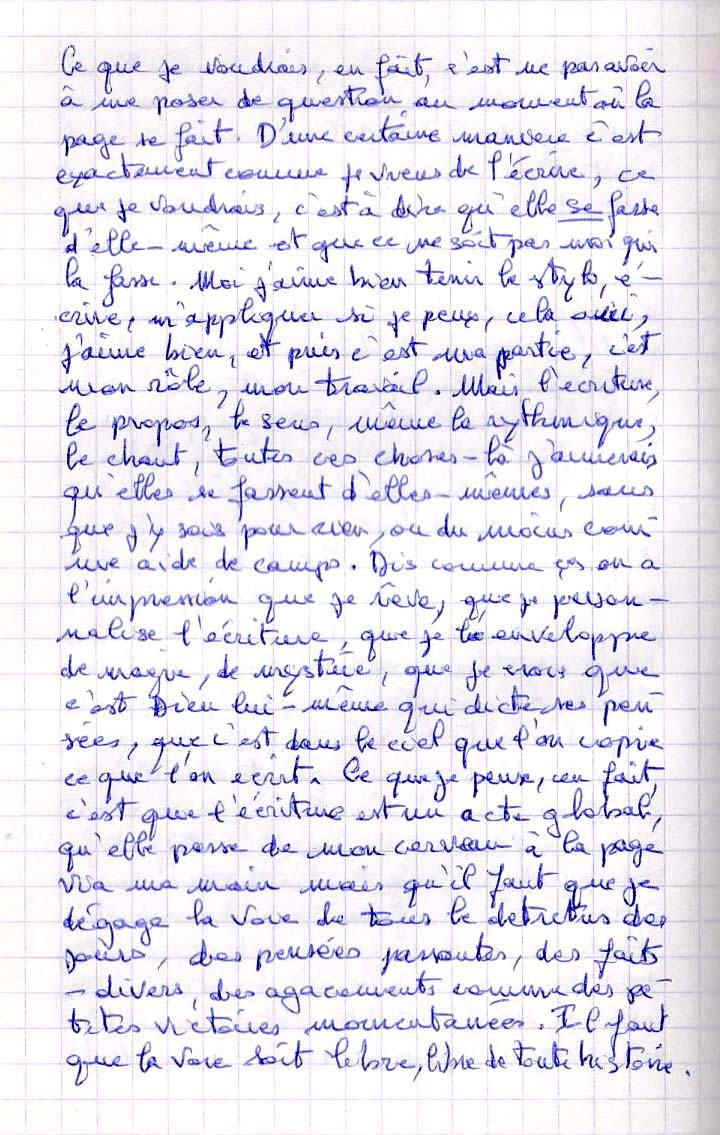 Ce que je voudrais, en fait, c'est ne pas avoir
à me poser de question au moment où la
page se fait. D'une certaine manière c'est
exactement comme je viens de l'écrire, ce
que je voudrais, c'est à dire qu'elle se fasse
d'elle-même et que ce ne soit pas moi qui
la fasse. Moi j'aime bien tenir le stylo, é-
crire, m'appliquer si je peux, cela oui,
j'aime bien, et puis c'est ma partie, c'est
mon rôle, mon travail. Mais l'écriture,
le propos, le sens, même la rythmique,
le chant, toutes ces choses-là j'aimerais
qu'elles se fassent d'elles-mêmes, sans
que j'y sois pour rien, ou du moins com-
me aide de camp. Dis comme ça on a
l'impression que je rêve, que je person-
nalise l'écriture, que je l'enveloppe
de magie, de mystère, que je crois que
c'est Dieu lui-même qui dicte ses pen
sées, que c'est dans le ciel que l'on copie
ce que l'on écrit. Ce que je pense, en fait,
c'est que l'écriture est un acte global,
qu'elle passe de mon cerveau à la page
via ma main mais qu'il faut que je
dégage la voie de tous le detritus des
jours, des pensées passantes, des faits
-divers, des agacements comme des pe-
tites victoires momentanées. Il faut
que la voie soit libre, libre de toute histoire.